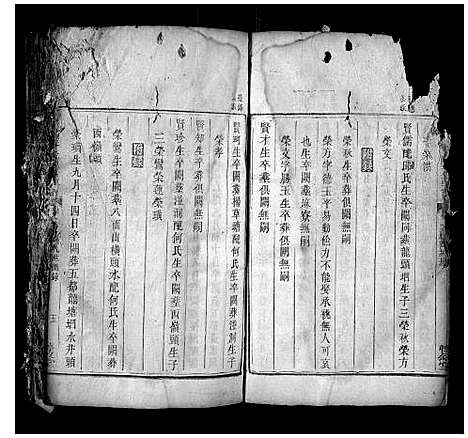 榮
賢儒配邱氏生卒闕同葬龍頭堋生子三榮秋榮方
榮文
附錄
榮秋生卒葬俱闕無嗣
榮方字德玉平易勤儉力不能娶承祧無人可哀
也生卒闕葬 寮無嗣
榮文字勝玉生卒葬俱闕無嗣
賢才生卒葬俱闕無嗣
賢 生卒闕葬楊草塘配何氏生卒闕葬 洞生子
榮孝
賢知生卒葬俱闕無嗣
賢珍生卒闕葬 洞配何氏生卒闕葬西嶺頭生子
三榮鸞榮蓮榮璜
附錄
榮鸞生卒闕葬八面山橫頭水配何氏生卒闕葬
西嶺頭
榮璜生九月十四日卒闕葬五都龍塘堋水井頭